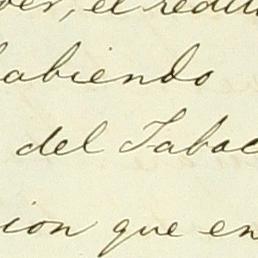 ver, el redu
habiendo
del Tabac
cion que en